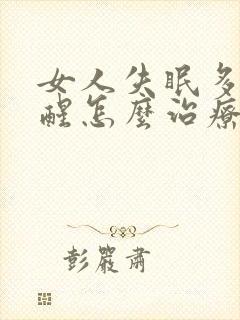 女人失眠多
醒怎麼治療
彭嚴肅